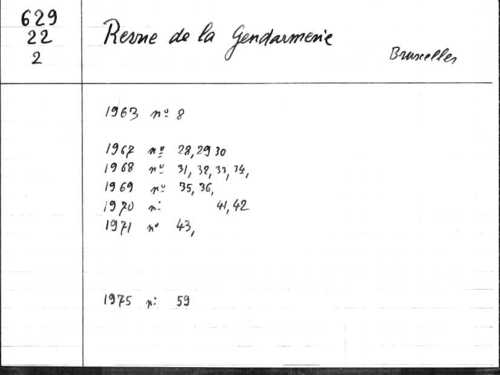 629
22
2
Revue de la Gendarmerie
Bruxelles
1963 nº 8
1967 nº 28, 29 30
1968 nº 31, 32, 33, 34,
1969 nº 35, 36,
1970 n: 41, 42
1971 nº 43,
1975 n: 59